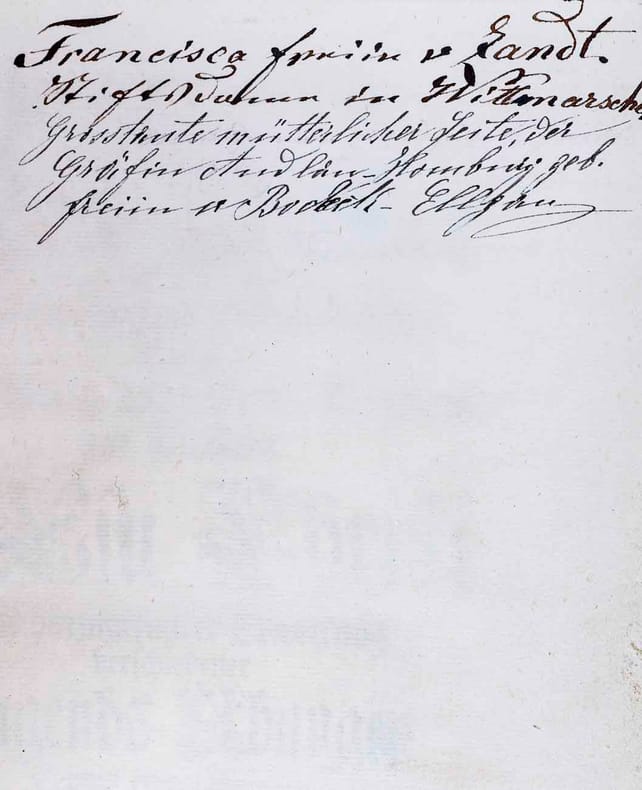 Francisca freiin v Zandt.
Stiftsdame in Wittmarsche
Grosstante mütterlicher Seite, der
Gräfin Andlau-Homburg geb.
freiin v Bodeck- Ellgau